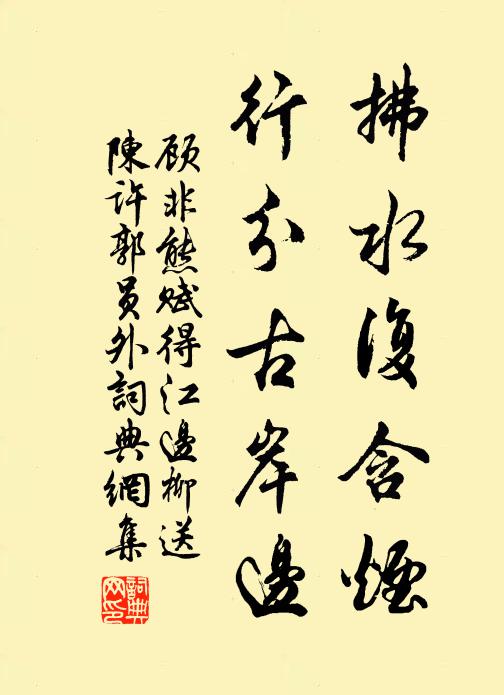 拂水復含煙
行分古岸邊
顧非熊賦得江邊柳送
陳許郭員外詞典網集
詞典網印